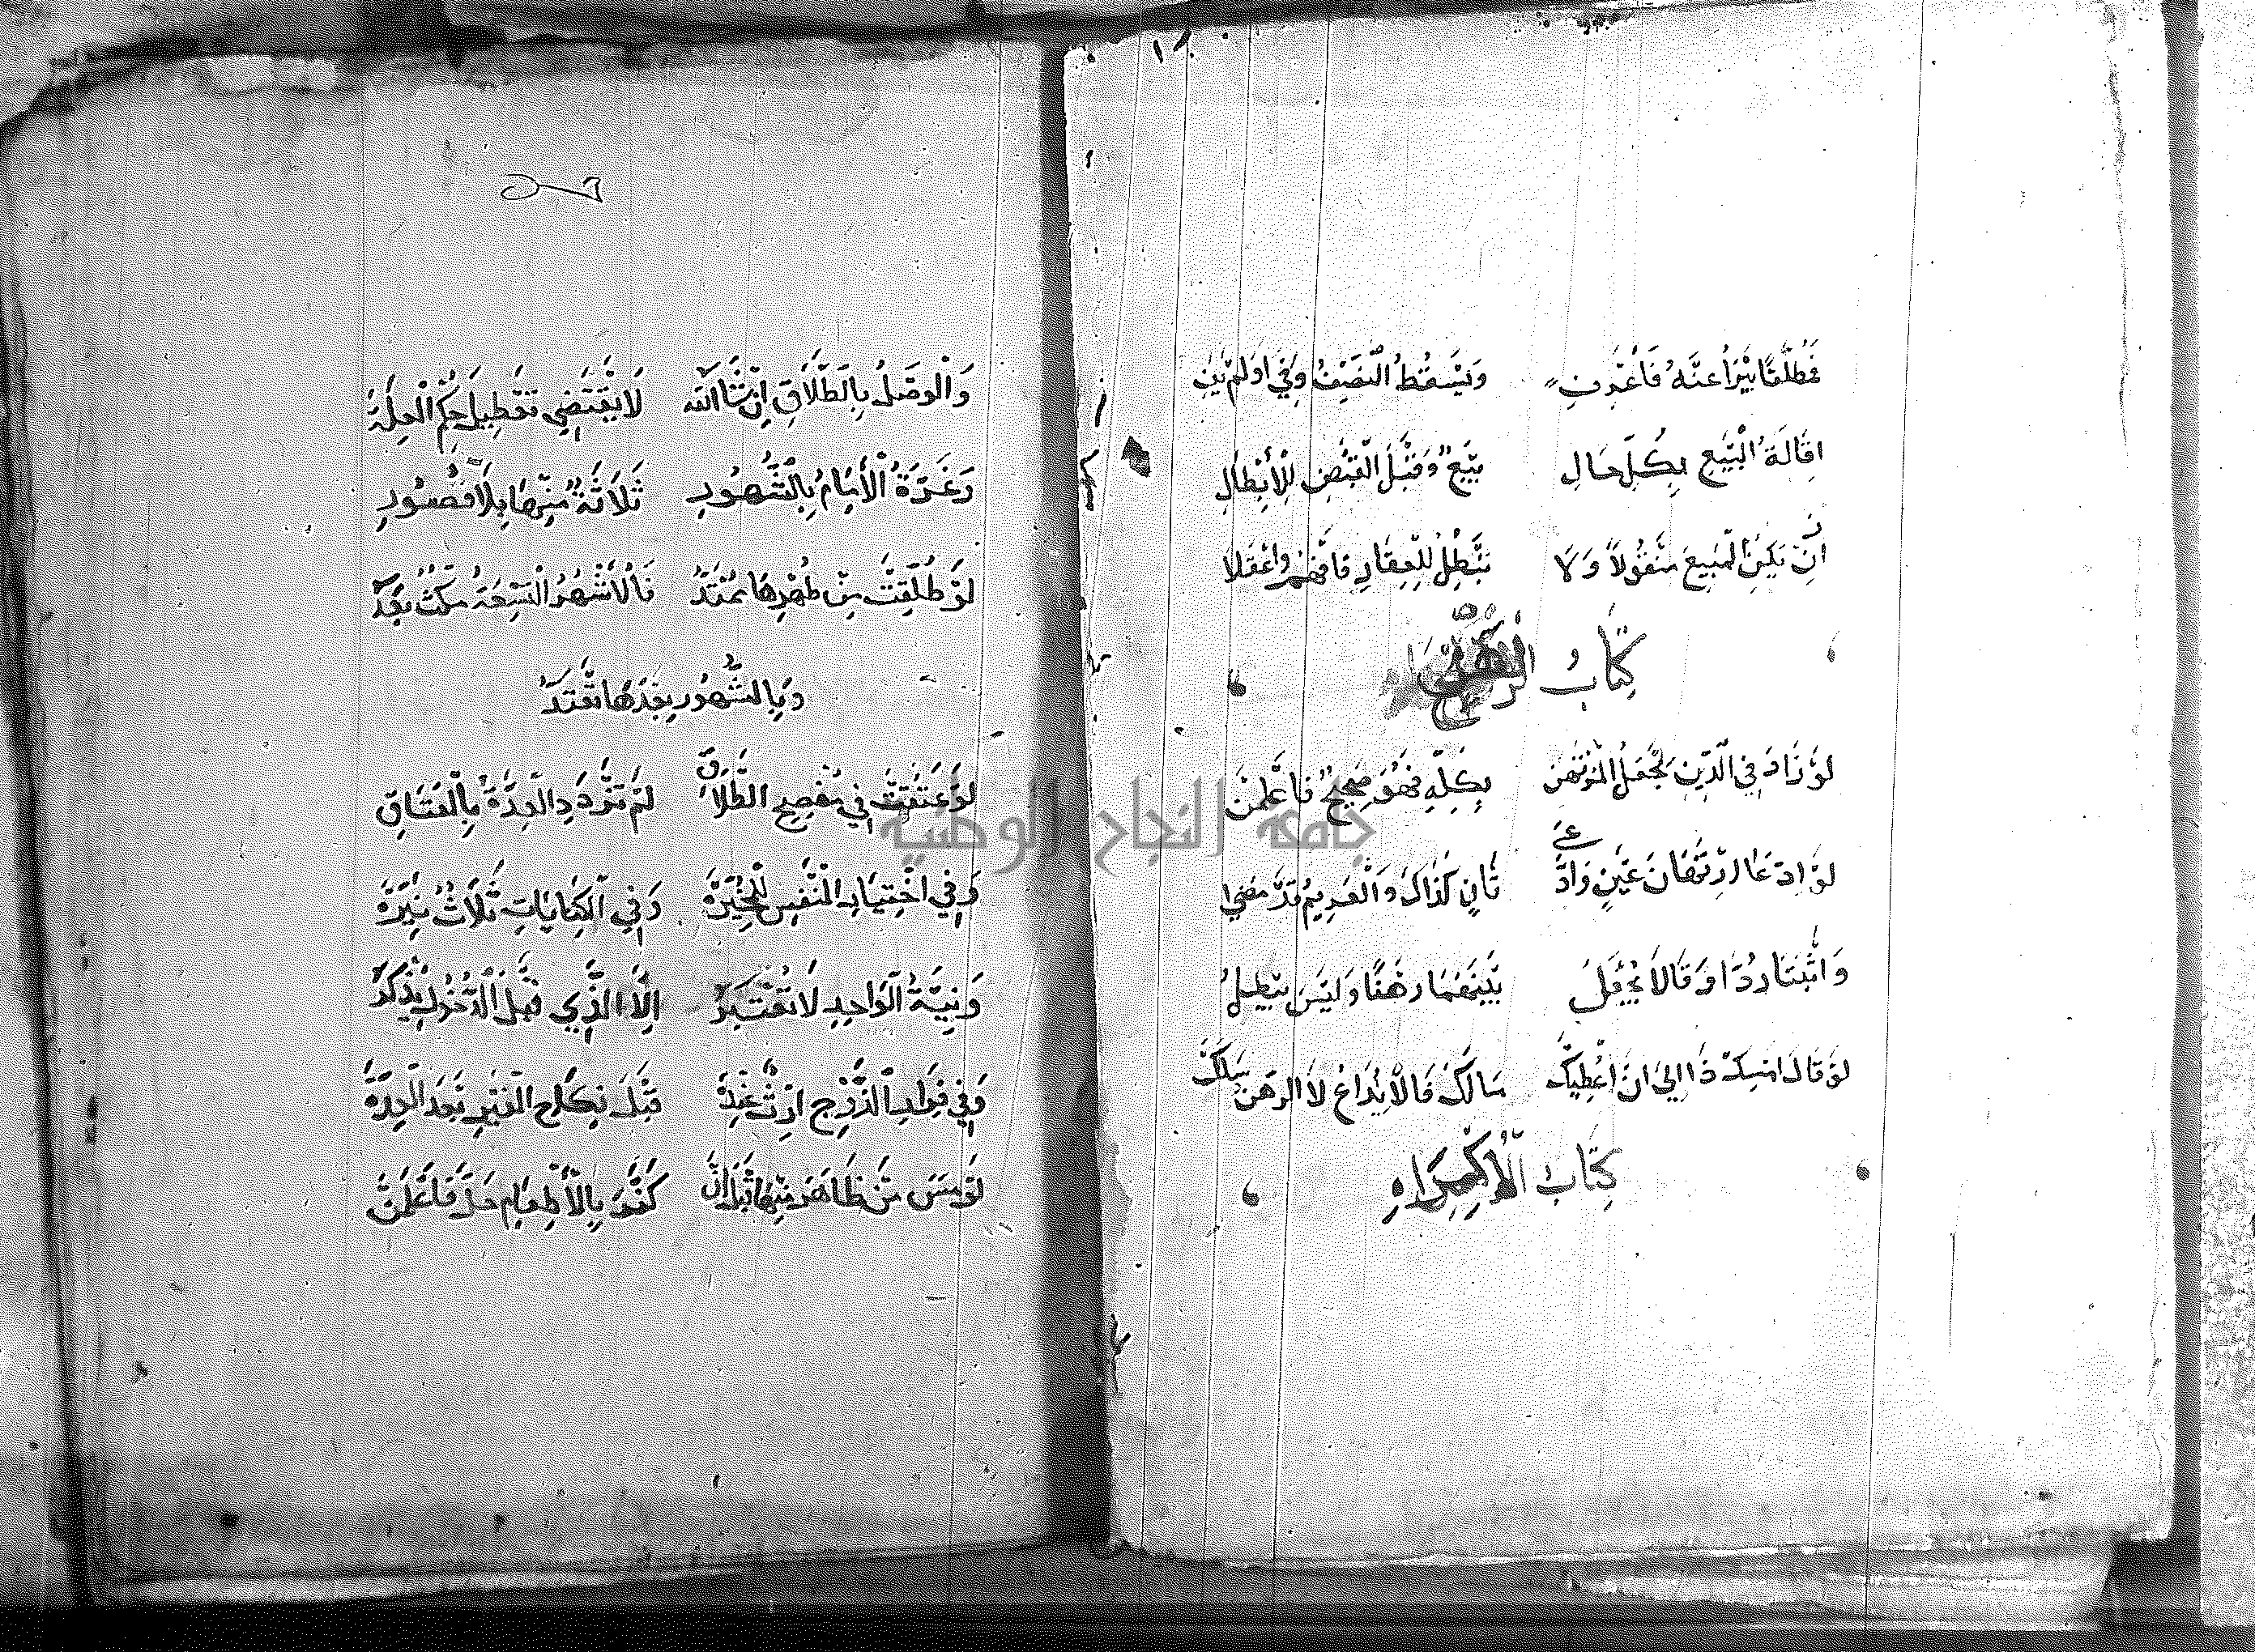 فَمُطْلَقًا يَبْرَأُ عَنْهُ فَاعْرِفِ وَيَسْقُطُ النِّصْفُ وَفِي
اِقَالَةُ الْبَيْعِ بِكُلِّ حَالِ بَيْعٌ وَقَبْلَ الْقَبْضِ لِلْاِبْطَالِ
اِنْ يَكُنِ الْمَبِيعُ مَنْقُولًا وَلَا تَبْطُلُ لِلْعِقَارِ فَافْهَمْ وَاعْقِلَا
كِتَابُ الرَّهْنِ
لَوْ زَادَ فِي الدَّيْنِ بِكُلِّهِ فَهُوَ صَحِيحٌ فَاعْلَمَنْ
لَوِ ادَّعَا ارْتِهَانَ عَيْنٍ وَادَّعَى ثَانٍ كَذَاكَ وَالْغَرِيمُ قَدْ
وَاثْبَتَا رُدَّا وَقَالَا يُجْعَلُ بَيْنَهُمَا رَهْنًا وَلَيْسَ يَبْطُلُ
لَوْ قَالَ امْسِكْ ذَا اِلَى اَنْ اُعْطِيَكْ مَا لَكَ فَالْاِيْدَاعُ لَا الرَّهْنُ سَلَكْ
كِتَابُ الْاِكْرَاهِ
وَالْوَصْلُ بِالطَّلَاقِ اِنْ شَا اللّٰه لَا يَقْتَضِي تَعْطِيلَ حُكْمِ الْعِلَّهْ
وَغَرَّةُ الْاَيَّامُ بِالشُّهُورِ ثَلَاثَةٌ مِنْهَا بِلَا قُصُورِ
لَوْ طُلِّقَتْ مِنْ طُهْرِهَا يَمْتَدُّ فَالْاَشْهُرُ التِّسْعَةُ مُكْثٌ بَعْدُ
وَبِالشُّهُورِ بَعْدَهَا تَعْتَدُّ
لَوْ عَتَقَتْ فِي مُفْصِحِ الطَّلَاقِ لَمْ تَزْدَدِ الْعِدَّةُ بِالْعَتَاقِ
وَفِي اخْتِيَارِ النَّفْسِ لِلْمُخَيَّرَهْ وَفِي الْكِنَايَاتِ ثَلَاثٌ نَيِّرَهْ
وَنِيَّةُ الْوَاحِدِ لَا تُعْتَبَرُ اِلَّا الَّذِي قَبْلَ الدُّخُولِ يُذْكَرُ
وَفِي فِرَارِ الزَّوْجِ اِرْثٌ عِنْدَهْ قَبْلَ نِكَاحِ الْغَيْرِ بَعْدَ الْعِدَّهْ
لَوْ مَسَّ مَنْ ظَاهَرَ مِنْهَا قَبْلَ اَنْ كَفَّرَ بِالْاِطْعَامِ حَلَّ فَاعْلَمَنْ
جامعة النجاح الوطنية